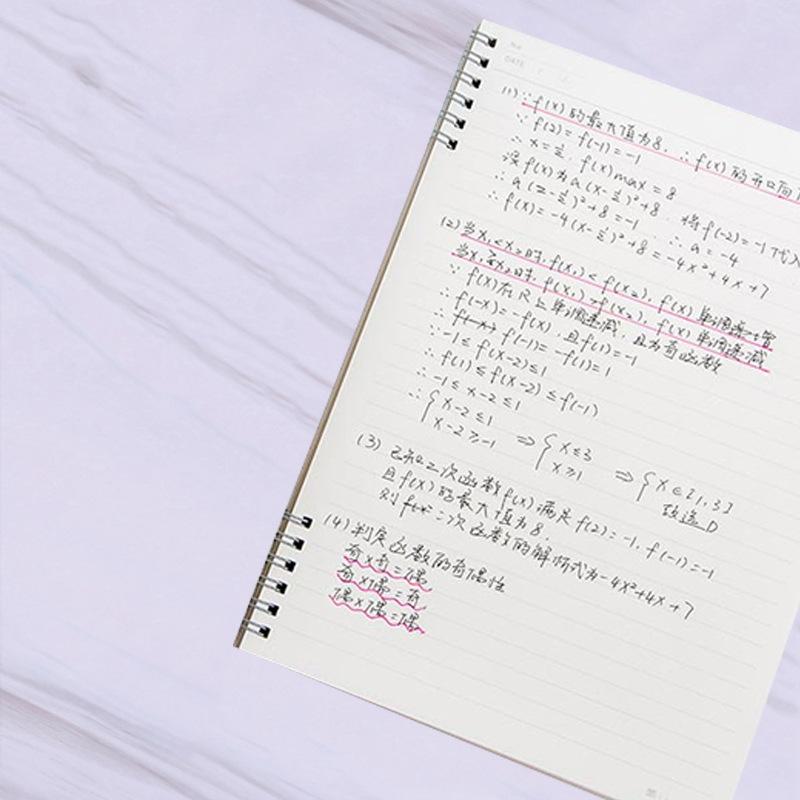 No.
DATE
(1) ∵ f(x)的最大值为8, ∴ f(x)的开口向
∵ f(2)=f(-1)=-1
∴ x=½, f(x)max=8
设f(x)为a(x-½)²+8, 将f(-2)=-1代入
∴ a(2-½)²+8=-1 ∴ a=-4
∴ f(x)=-4(x-½)²+8=-4x²+4x+7
(2) 当x₁<x₂时, f(x₁)<f(x₂), f(x)单调递增
当x₁<x₂时, f(x₁)>f(x₂), f(x)单调递减
∵ f(x)在R上单调递减, 且为奇函数
∴ f(-x)=-f(x), 且f(1)=-1
∴ f(-1)=-f(1)=1
∵ -1≤f(x-2)≤1
∴ f(1)≤f(x-2)≤f(-1)
∴ -1≤x-2≤1
∴ { x-2≤1 ⇒ { x≤3 ⇒ { x∈[1,3]
x-2≥-1 x≥1 故选D
(3) 已知二次函数f(x)满足f(2)=-1, f(-1)=-1
且f(x)的最大值为8.
则二次函数的解析式为-4x²+4x+7
(4) 判定函数的奇偶性
奇×奇=偶
奇×偶=奇
偶×偶=偶